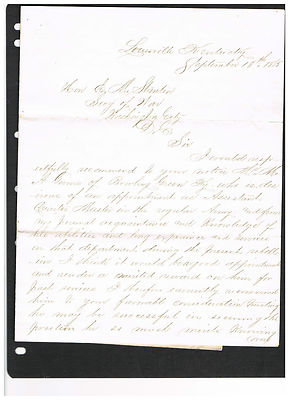 Louisville Kentucky
September 18th 186
Hon E. M. Stanton
Secy of War
Washington City
D. C.
Sir
I would resp
ectfully recommend to your notice
of Bowling Green Ky. who is des
irous of an appointment as Assistant
Quarter Master in the regular Army, and from
my personal acquaintance and knowledge of
his abilities and long experience and services
in that department during the present rebell
ion I think it would be a good appointment
and render a merited reward on him for
past services I therefore earnestly recommend
him to your favorable consideration trusting
he may be successful in securing the
position he so much merits Knowing